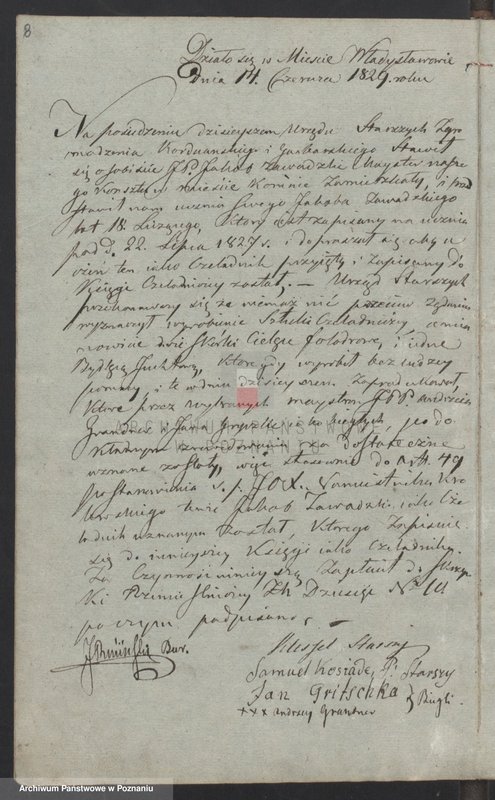 8
Działo się w Mieście Władysławowie
Dnia 14. Czerwca 1829. roku
Na posiedzeniu dzisieyszem Urzędu Starszych Zgro
madzenia Korduanskiego i Garbarskiego Stawił
się osobiście JP. Jakob Zawadzki Mayster nasze
go konsztu w mieście Koninie Zamieszkały, i przed
stawił nam ucznia swego Jakoba Zawadzkiego
lat 18. Liczącego, który jest zapisany na ucznia
pod d. 22. Lipca 1827 r. i dopraszał się aby u
czeń ten iako Czeladnik przyięty i zapisany do
Księgi Czeladniczy został, — Urząd Starszych
przekonawszy się że niemasz nic przeciw żądaniu
wyznaczył wyrobienie Sztuki Czeladniczy, a mia
nowicie dwie Skórki Cielęce folodrowe, i iedne
Bydlęcą Juchtową, które gdy wyrobił bez żadney
pomocy i te w dniu dzisieyszem Zaprodukował,
które przez wybranych maystrów JPP Andrzeia
Grandner Jana Gryczke iako biegłych, po do
kładnym zrewidowaniu za dostateczne
uznane zostały, więc stosownie do Art. 49
postanowienia J. O. X. Namiestnika Kro
lewskiego tenże Jakob Zawadzki iako Cze
ladnik uznanym został którego Zapisanie
się do ninieyszey Księgi iako Czeladnika
Za Czynność ninieyszą Zapłacił do Skrzyn
ki Rzemieślniczy Zł. Dziesięć No 10
po czym podpisano
Bur.
Starszy
Samuel Kosiade, P. Starszy
Jan Gritschka } Biegli.
+++ Andrzey Grantner
ARCHIWUM PAŃSTWOWE
W POZNANIU
Archiwum Państwowe w Poznaniu